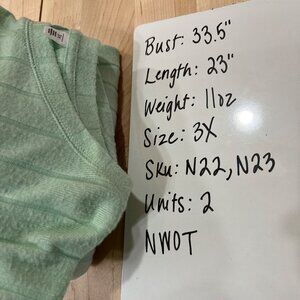 Bust: 33.5"
Length: 23"
Weight: 11oz
Size: 3X
Sku: N22, N23
Units: 2
NWOT